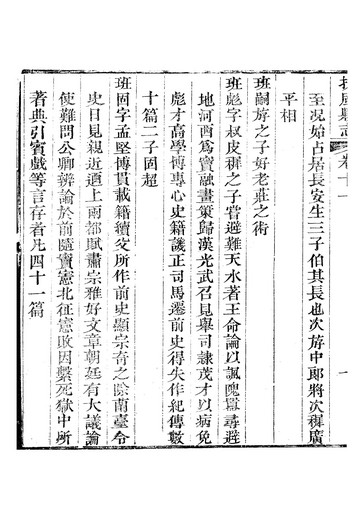 扶風縣志 卷十一 一
至況始占居長安生三子伯其長也次斿中郎將次穉廣
平相
班嗣斿之子好老莊之術
班彪字叔皮穉之子嘗避難天水著王命論以諷隗囂尋避
地河西爲竇融畫策歸漢光武召見舉司隷茂才以病免
彪才高學博專心史籍譏正司馬遷前史得失作紀傳數
十篇二子固超
班固字孟堅博貫載籍續父所作前史顯宗奇之除蘭臺令
史日見親近遷上兩都賦肅宗雅好文章朝廷有大議論
使難問公卿辨論於前隨竇憲北征憲敗因繫死獄中所
著典引賓戲等言存者凡四十一篇